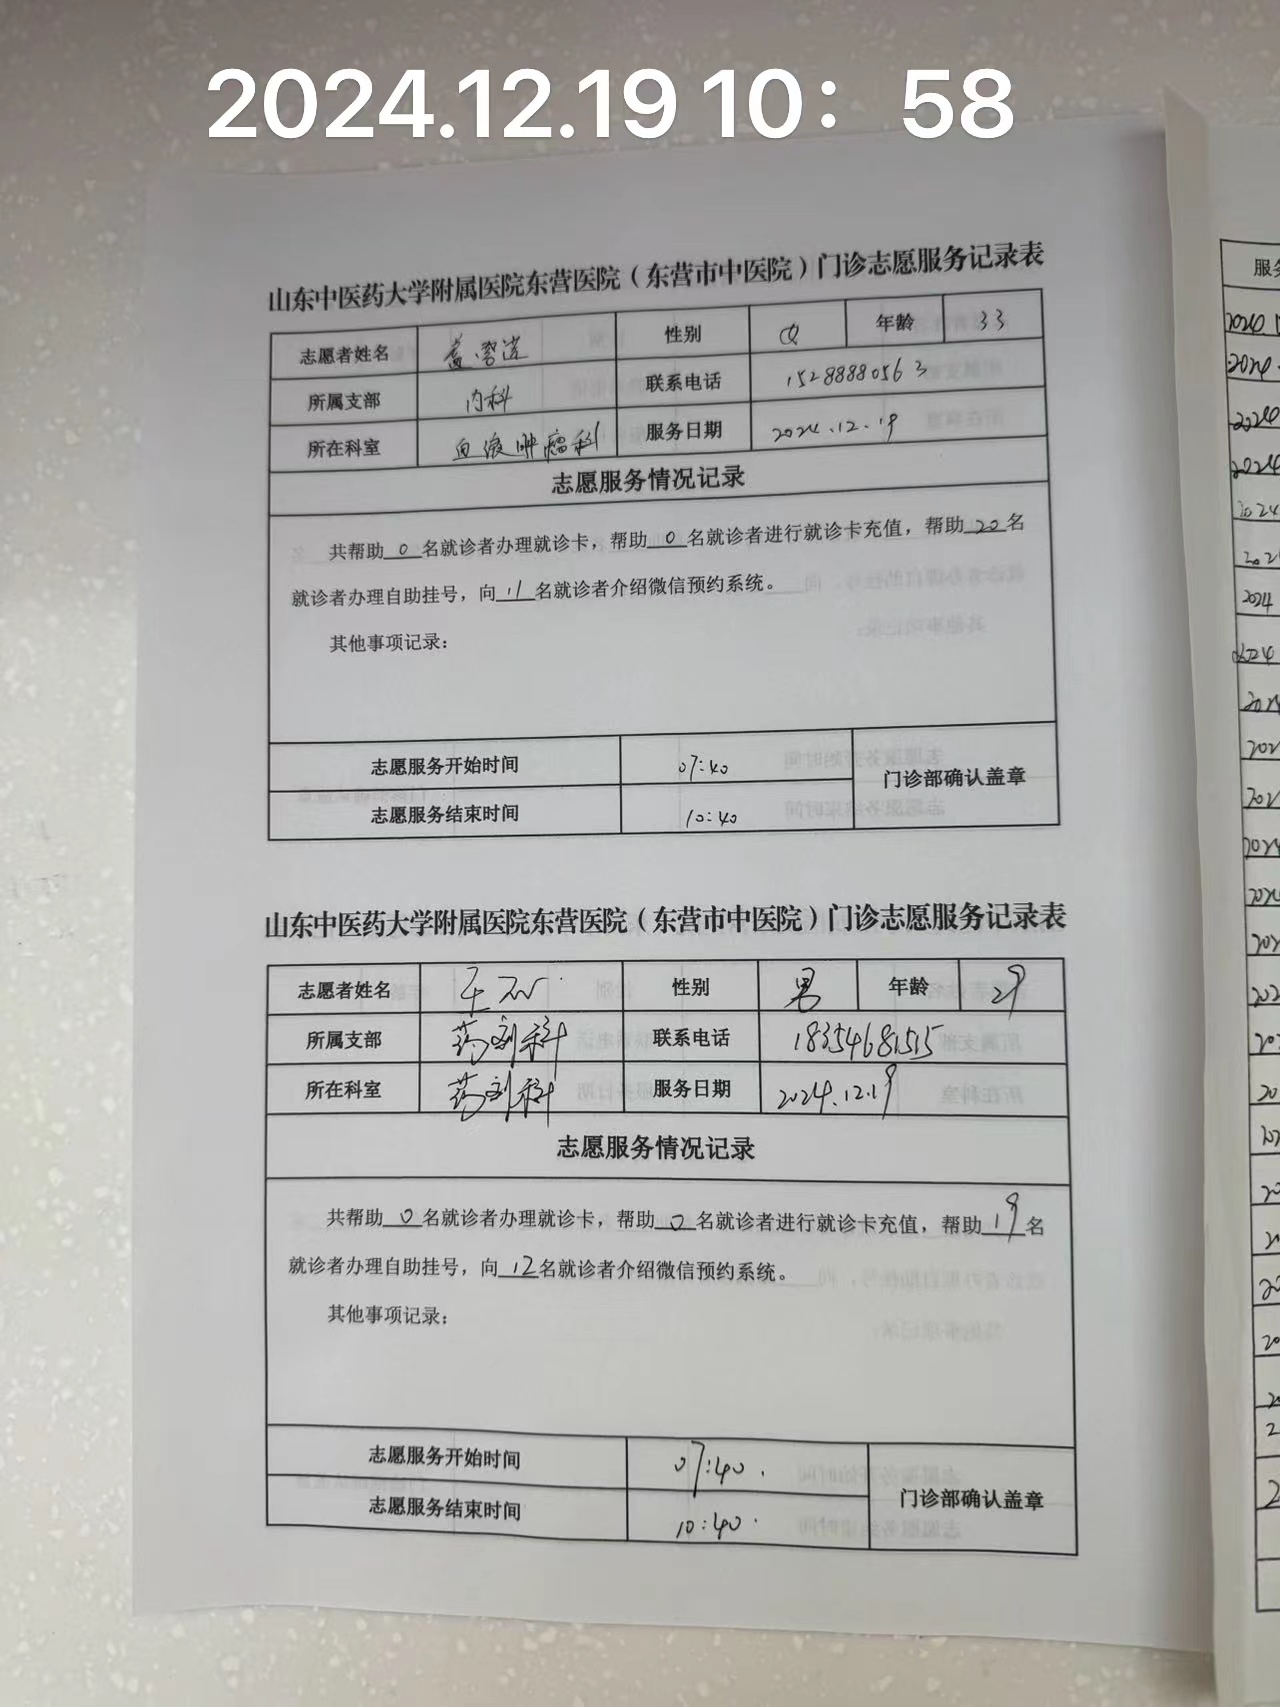 2024.12.19 10：58
山东中医药大学附属医院东营医院（东营市中医院）门诊志愿服务记录表
志愿者姓名 性别 女 年龄 33
所属支部 内科 联系电话 15288880563
所在科室 血液肿瘤科 服务日期 2024.12.19
志愿服务情况记录
共帮助 0 名就诊者办理就诊卡，帮助 0 名就诊者进行就诊卡充值，帮助 20 名
就诊者办理自助挂号，向 11 名就诊者介绍微信预约系统。
其他事项记录：
志愿服务开始时间 07:40
门诊部确认盖章
志愿服务结束时间 10:40
山东中医药大学附属医院东营医院（东营市中医院）门诊志愿服务记录表
志愿者姓名 性别 男 年龄 29
所属支部 药剂科 联系电话 18354681515
所在科室 药剂科 服务日期 2024.12.19
志愿服务情况记录
共帮助 0 名就诊者办理就诊卡，帮助 0 名就诊者进行就诊卡充值，帮助 19 名
就诊者办理自助挂号，向 12 名就诊者介绍微信预约系统。
其他事项记录：
志愿服务开始时间 07:40.
门诊部确认盖章
志愿服务结束时间 10:40.